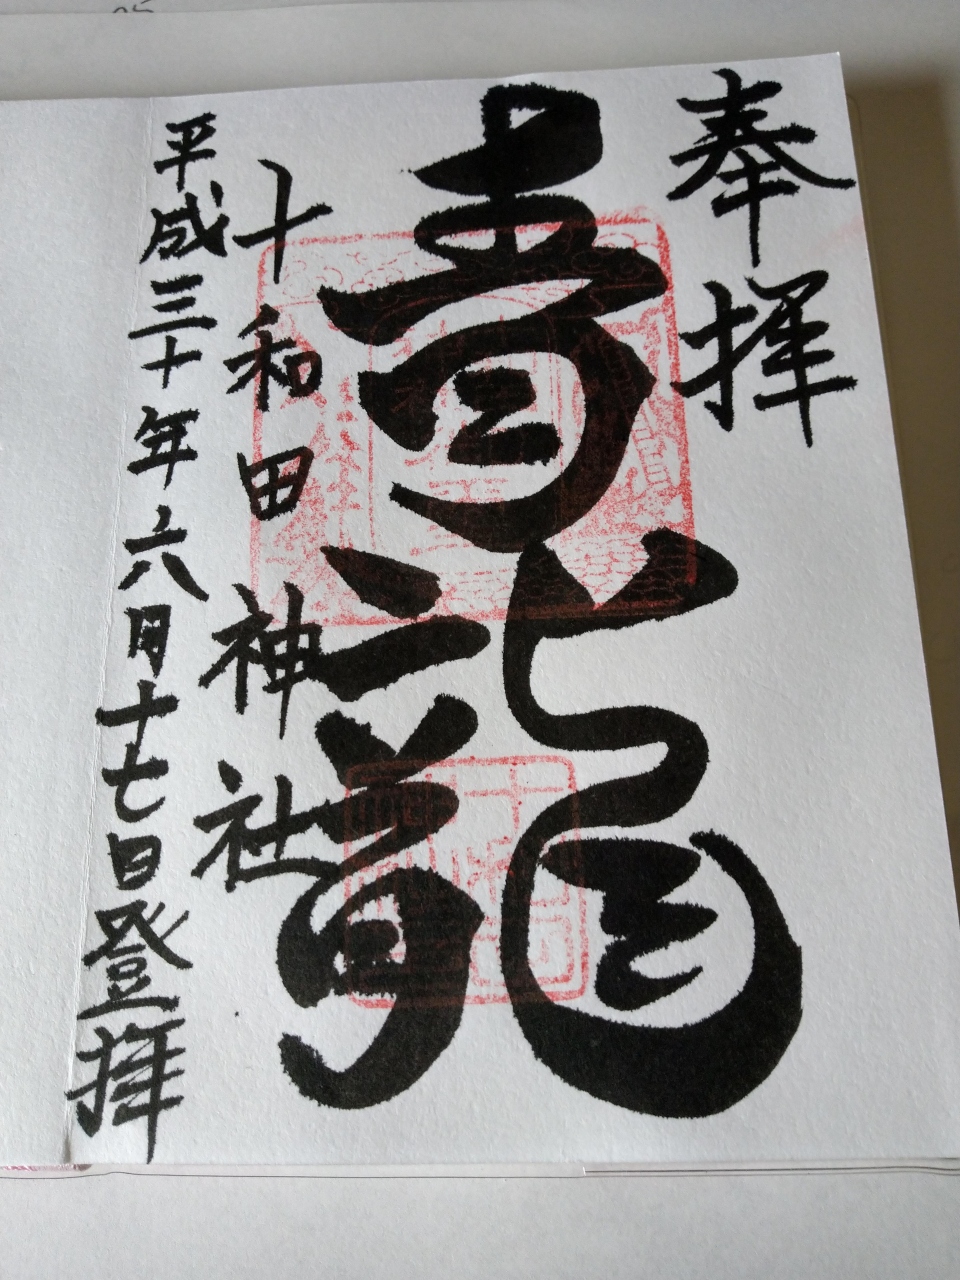 奉拝
青龍
十和田神社
平成三十年六月十七日登拝